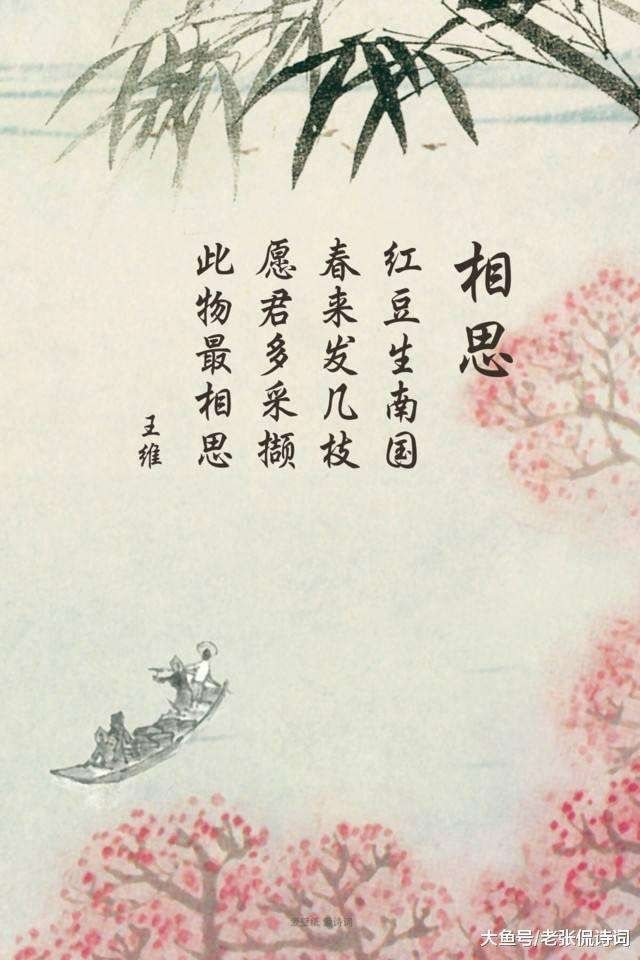 相思
红豆生南国
春来发几枝
愿君多采撷
此物最相思
王维
大鱼号/老张侃诗词